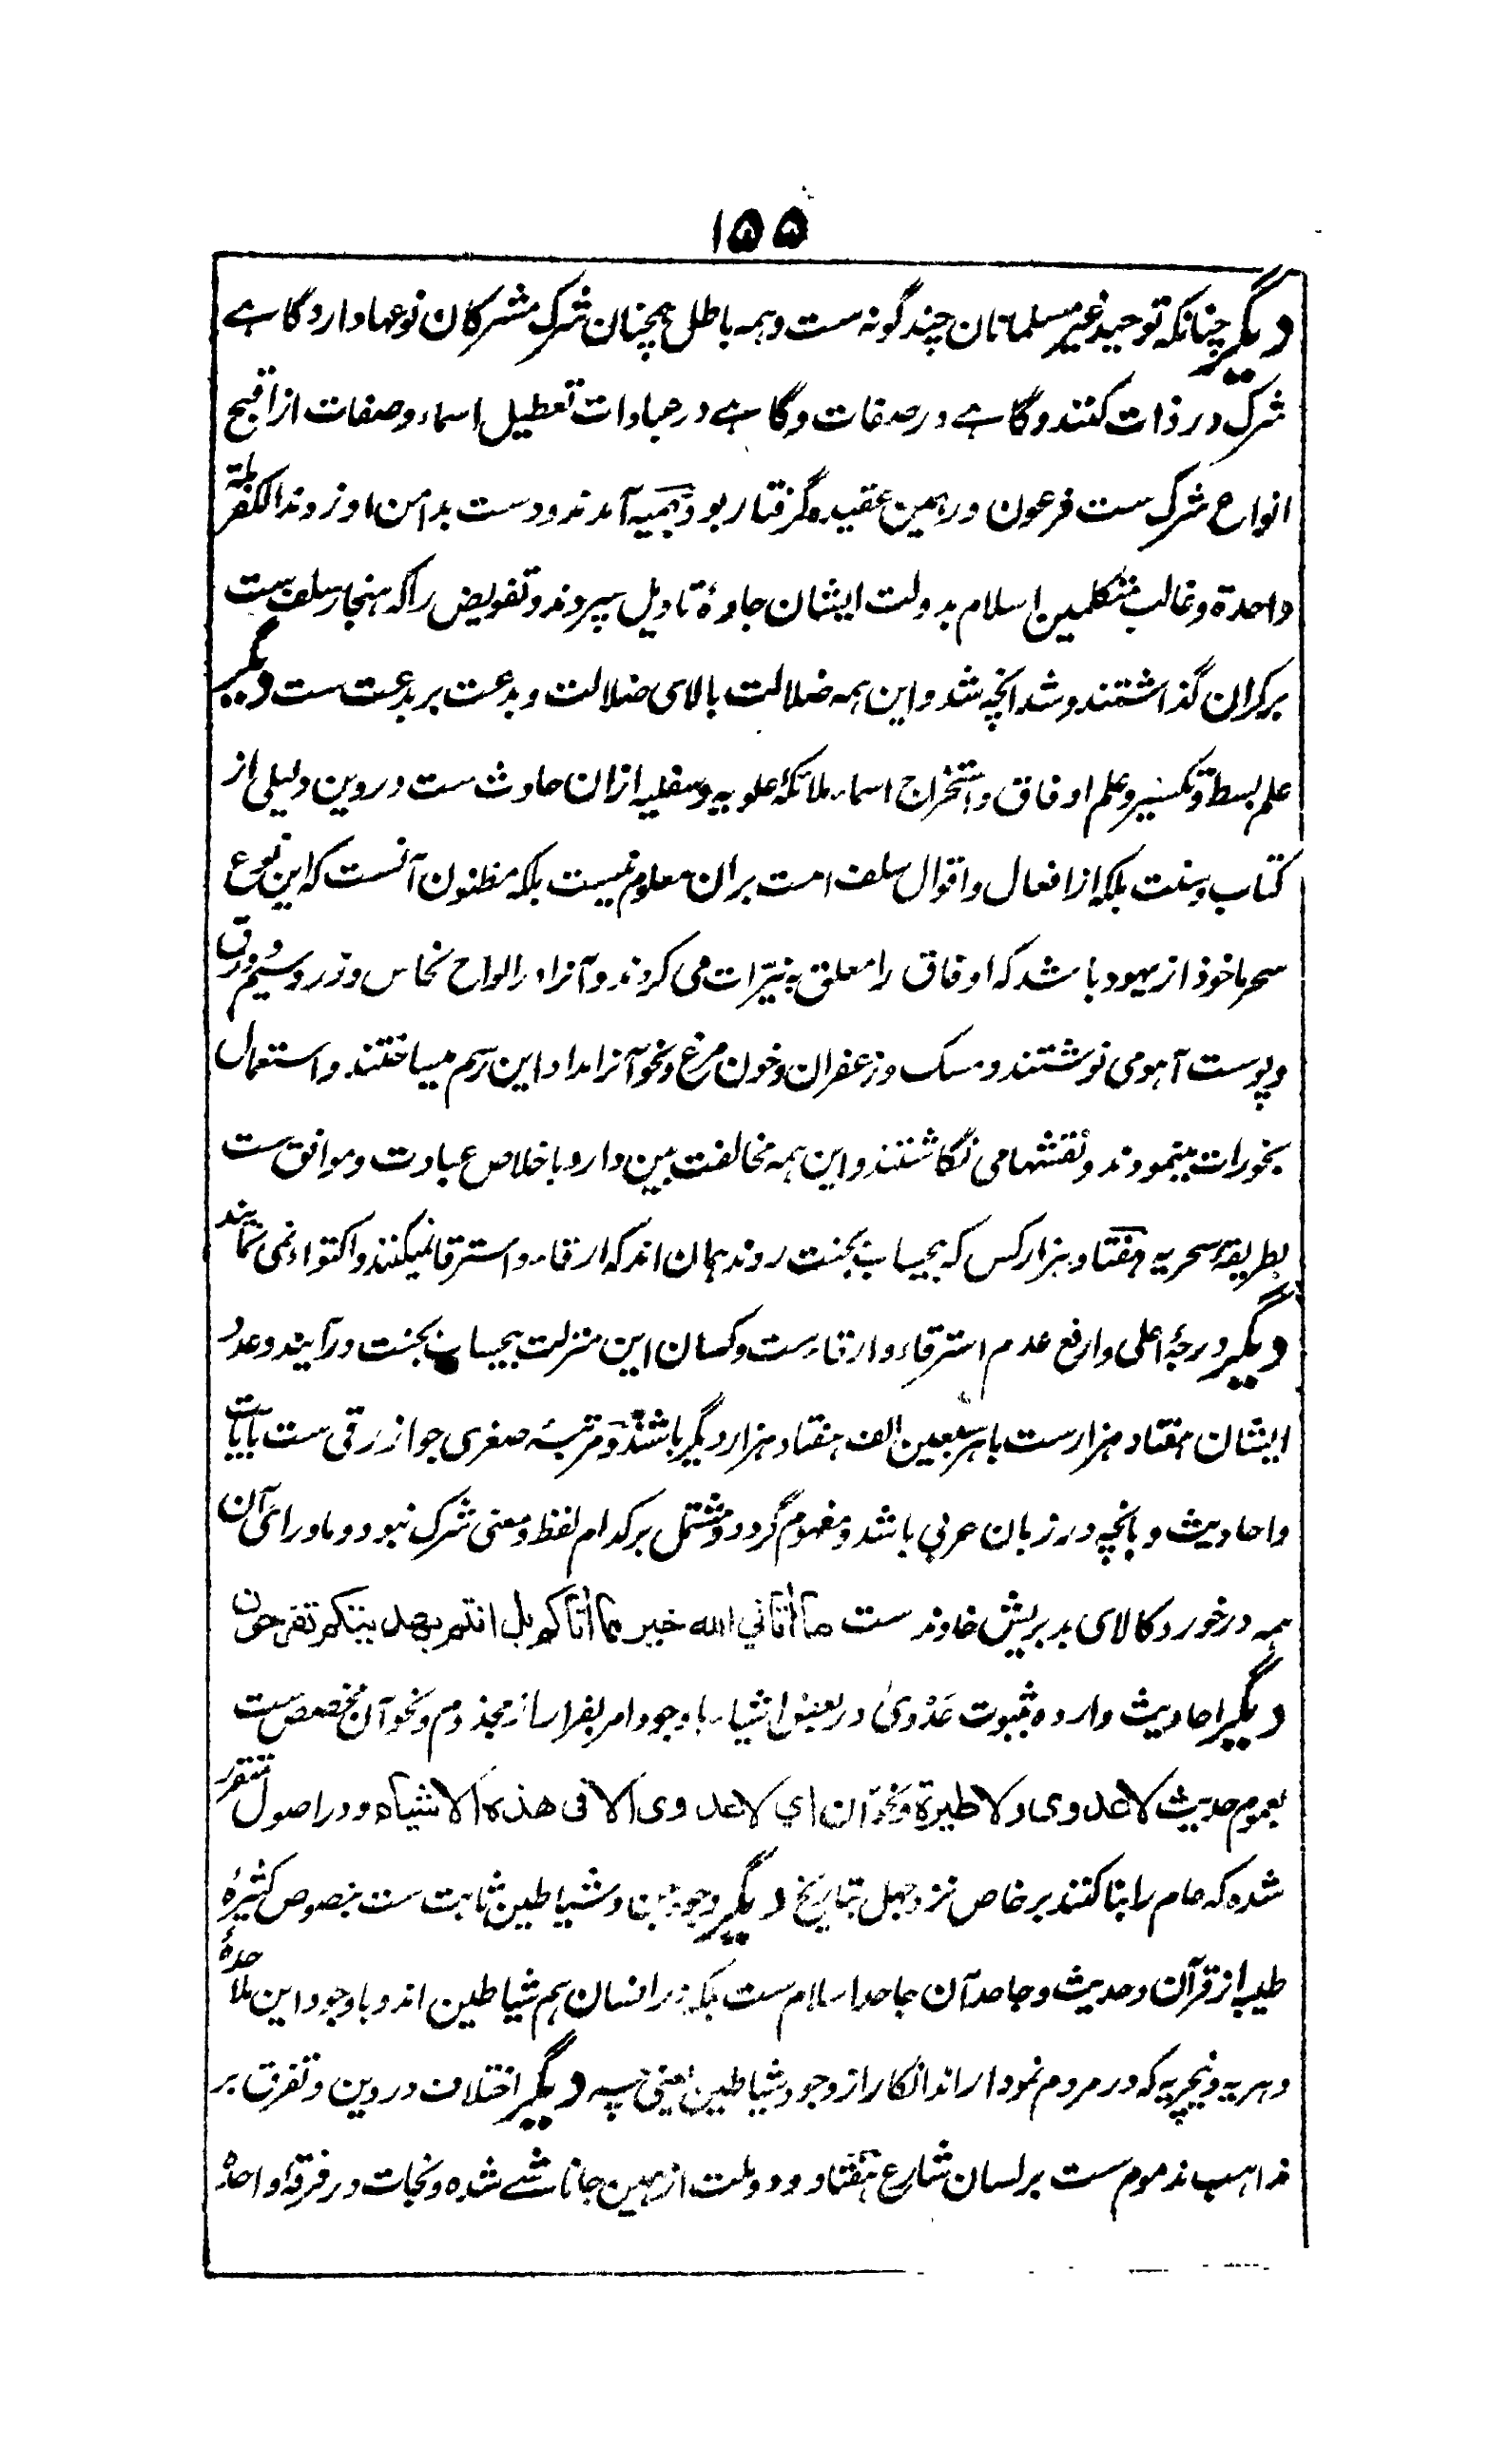 ۱۵۵
دیگر چنانکه توحید غیر مسلمانان چند گونه ست و همه باطل همچنان شرک مشرکان نوعها دارد گاہے
شرک در ذات کنند و گاہے در صفات و گاہے در عبادات تعطیل اسماء و صفات از اقبح
انواع شرک ست فرعون در ہمین عقیدہ گرفتار بود جہمیہ آمدند و دست بدامن او زدند الکفر ملة
واحدة و غالب متکلمین اسلام بدولت ایشان جادۂ تاویل سپردند و تفویض را کہ ہنجار سلف ست
بر کران گذاشتند و شد انچہ شد و این ہمہ ضلالت بالای ضلالت و بدعت بر بدعت ست دیگر
علم بسط و تکسیر و علم اوفاق و استخراج اسماء ملائکۂ علویہ و سفلیہ ازان حادث ست در دین دلیلی از
کتاب و سنت بلکہ از افعال و اقوال سلف امت بران معلوم نیست بلکہ مظنون آنست کہ این نوع
سحر ماخوذ از یہود باشد کہ اوفاق را معلق بہ نیّرات می کردند و آنرا در الواح نحاس و زر و سیم و ورق
و پوست آہو می نوشتند و مسک و زعفران و خون مرغ و نحو آنرا مداد این رسم میساختند و استعمال
بخورات مینمودند و نقشہا می نگاشتند و این ہمہ مخالفت مبین دارد با خلاص عبادت و موافق ست
بطریقۂ سحریہ ہفتاد ہزار کس کہ بیحساب بجنت روند ہمان اند کہ ارقاء و استرقا نمیکنند و اکتواء نمی نمایند
دیگر درجۂ اعلی و ارفع عدم استرقاء و ارقاء ست و کسان این منزلت بیحساب بجنت در آیند و عدد
ایشان ہفتاد ہزار ست با ہر سبعین الف ہفتاد ہزار دیگر باشند و مرتبۂ صغری جواز رقی ست بآیات
و احادیث و بانچہ در زبان عربی باشد و مفہوم گردد و مشتمل بر کدام لفظ و معنی شرک نبود و ماورای آن
ہمہ در خورد کالای بد بریش خاوند ست مما أتاني الله خير مما أتاكم بل انتم بهديتكم تفرحون
دیگر احادیث واردہ بثبوت عَدْویٰ در بعض اشیاء با وجود امر بفرار از مجذوم و نحو آن مخصص ست
بعموم حدیث لا عدوى ولا طيرة و نحو آن اي لا عدوى الا فى هذه الاشياء و در اصول متقرر
شدہ کہ عام را بنا کنند بر خاص نزد جہل بتاریخ دیگر وجود جن و شیاطین ثابت ست بنصوص کثیرۂ
طیبہ از قرآن و حدیث و جاحد آن جاحد اسلام ست بلکہ در انسان ہم شیاطین اند و با وجود این ملاحدۂ
دہریہ و نیچریہ کہ در مردم نمودار اند انکار از وجود شیاطین یعنی چہ دیگر اختلاف در دین و تفرق بر
مذاہب مذموم ست بر لسان شارع ہفتاد و دو ملت از ہمین جا ناشے شدہ و نجات در فرقۂ واحدۂ